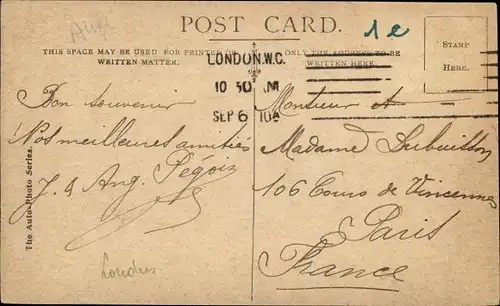 POST CARD.
1e
THIS SPACE MAY BE USED FOR PRINTED OR
WRITTEN MATTER.
ONLY THE ADDRESS TO BE
WRITTEN HERE.
STAMP
HERE.
LONDON.W.C.
10 30 AM
SEP 6 10A
Bon souvenir
Nos meilleures amitiés
J. & Ang.
Monsieur et
Madame Dubuisson
106 Cours de Vincennes
Paris
France
Londres
The Auto-Photo Series.